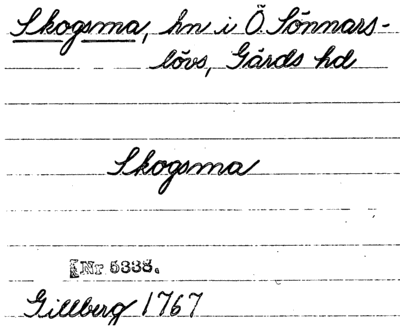 Skogsma, hn i Ö. Sönnars-
lövs, Gärds hd
Skogsma
Nr 5338.
Gillberg 1767